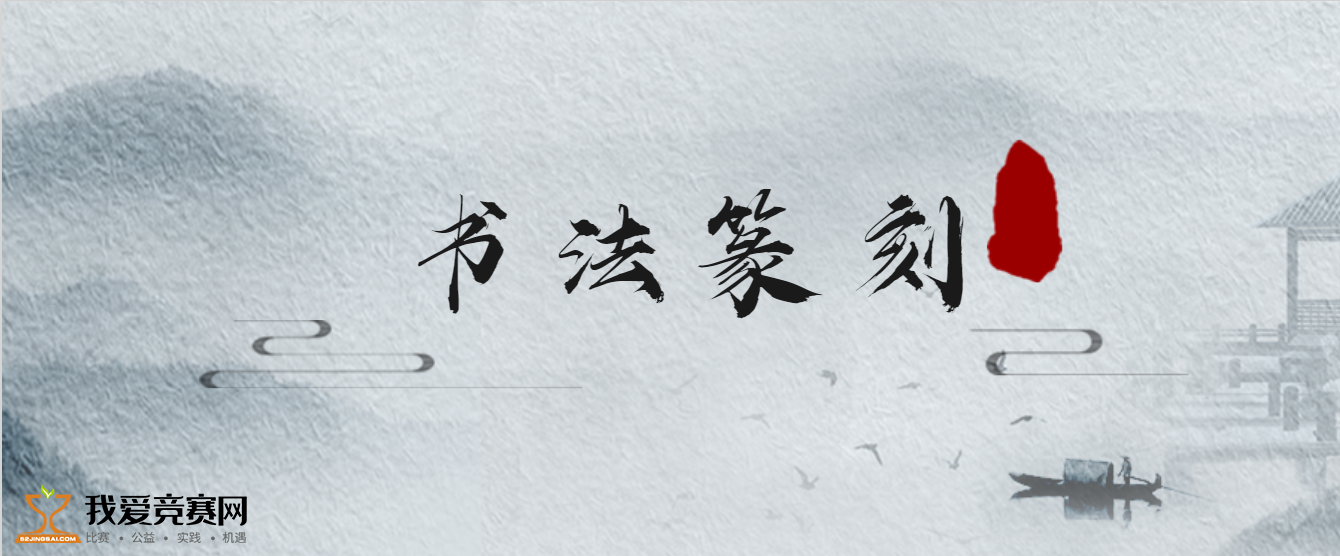 书法篆刻
我爱竞赛网
52JINGSAI.COM
比赛 • 公益 • 实践 • 机遇